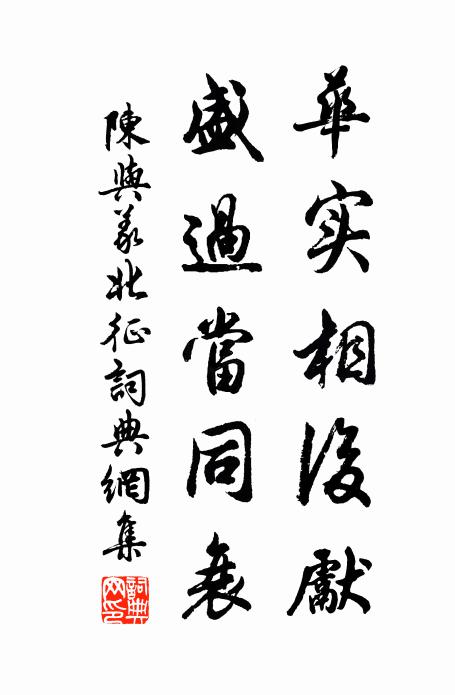 華实相後獻
盛過當同衰
陳與義北征詞典網集
詞典网印